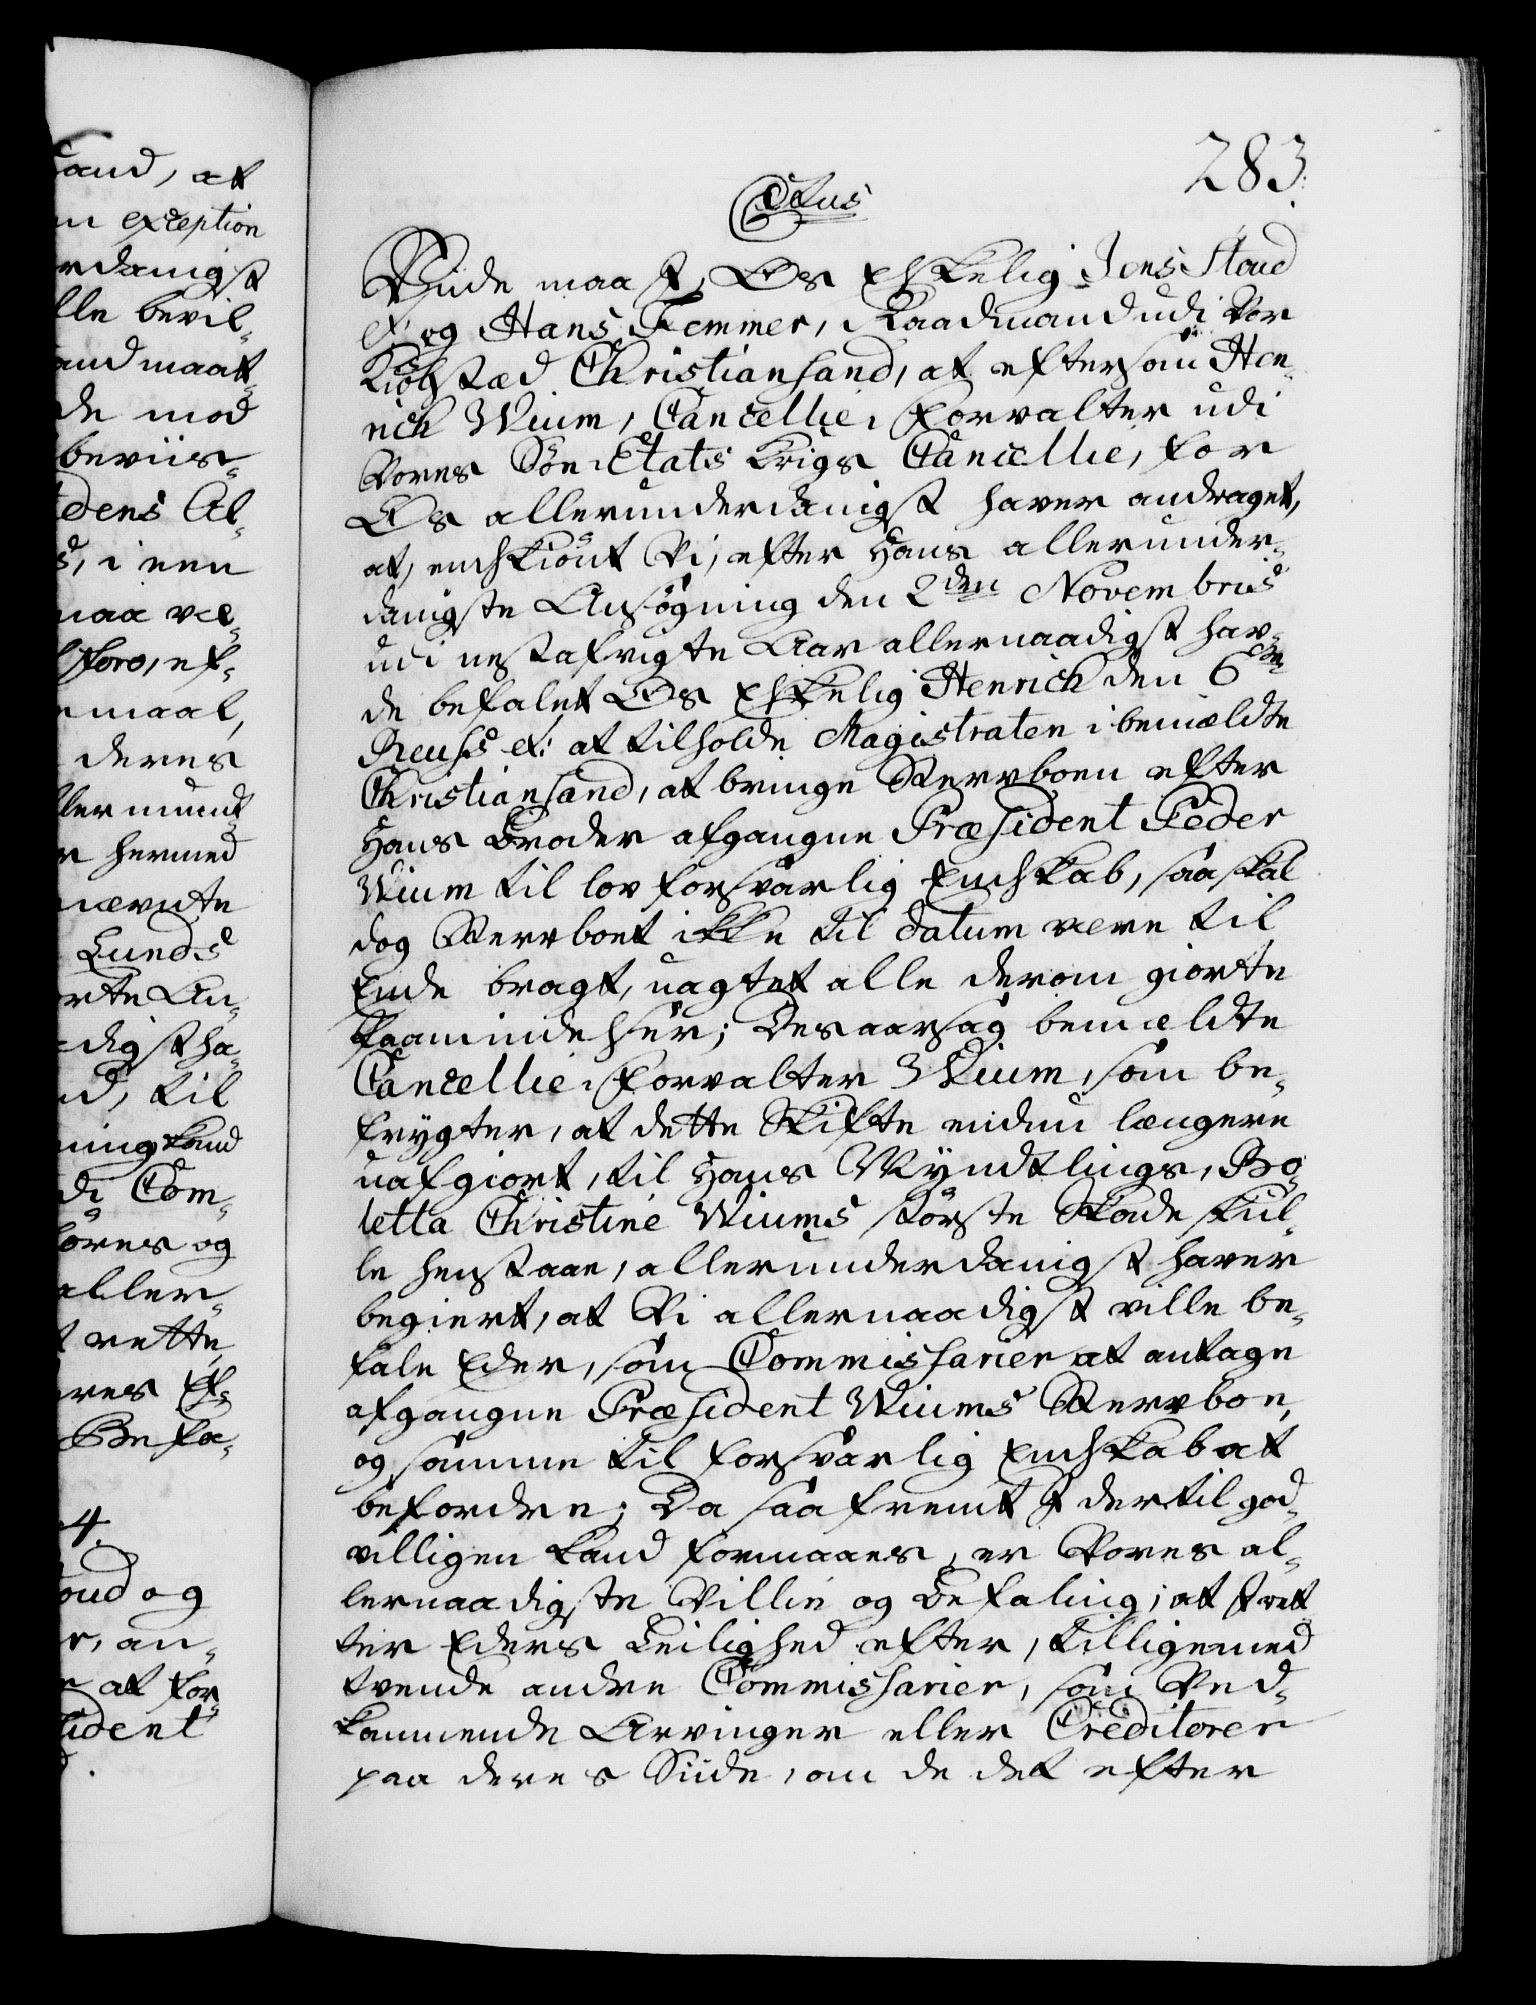 283.
Ctus
Viide maa I, Os Elskelig Jens Stoud
etc: og Hans Femmer, Raadmand udi Vor
Kiøbstæd Christiansand, at eftersom Hen-
rich Wium, Cancellie-Forvalter udi
Vores Søe-Etats Krigs Cancellie, for
Os allerunderdanigst haver andraget,
at, endskiønt Vi, efter Hans allerunder-
danigste Ansøgning den 2den Novembris
udi nestafvigte Aar allernaadigst hav-
de befalet Os Elskelig Henrich den 6te
Reuss etc: at tilholde Magistraten i bemældte
Christiansand, at bringe Sterboen efter
Hans Broder afgangne Præsident Peder
Wium til lovforsvarlig Endskab, saa skal
dog Sterboet ikke til datum være til
Ende bragt, uagtet alle derom giorte
Paamindelser; Desaarsag bemældte
Cancellie-Forvalter Wium, som be-
frygter, at dette Skifte enden længere
uafgiort, til Hans Myndtlings, Bo-
letta Christine Wiums største Skade skul-
le henstaae, allerunderdanigst haver
begiert, at Vi allernaadigst ville be-
fale Eder, som Commissarier at antage
afgangne Præsident Wiums Sterboe,
og samme til forsvarlig Endskab at
befordre; Da saafremt I dertil god-
villigen kand formaaes, er Vores al-
lernaadigste Villie og Befaling, at I ret-
ter Eders Leilighed efter, tilligemed
tvende andre Commissarier, som Ved-
kommende Arvinger eller Creditorer
paa deres Siide, om de det efter